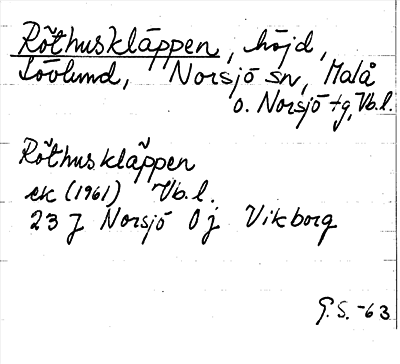 Röthuskläppen, höjd,
Lövlund, Norsjö sn, Malå
o. Norsjö tg, Vb.l.
Röthuskläppen
ek (1961) Vb.l.
23 J Norsjö 0j Vikborg
G.S. -63